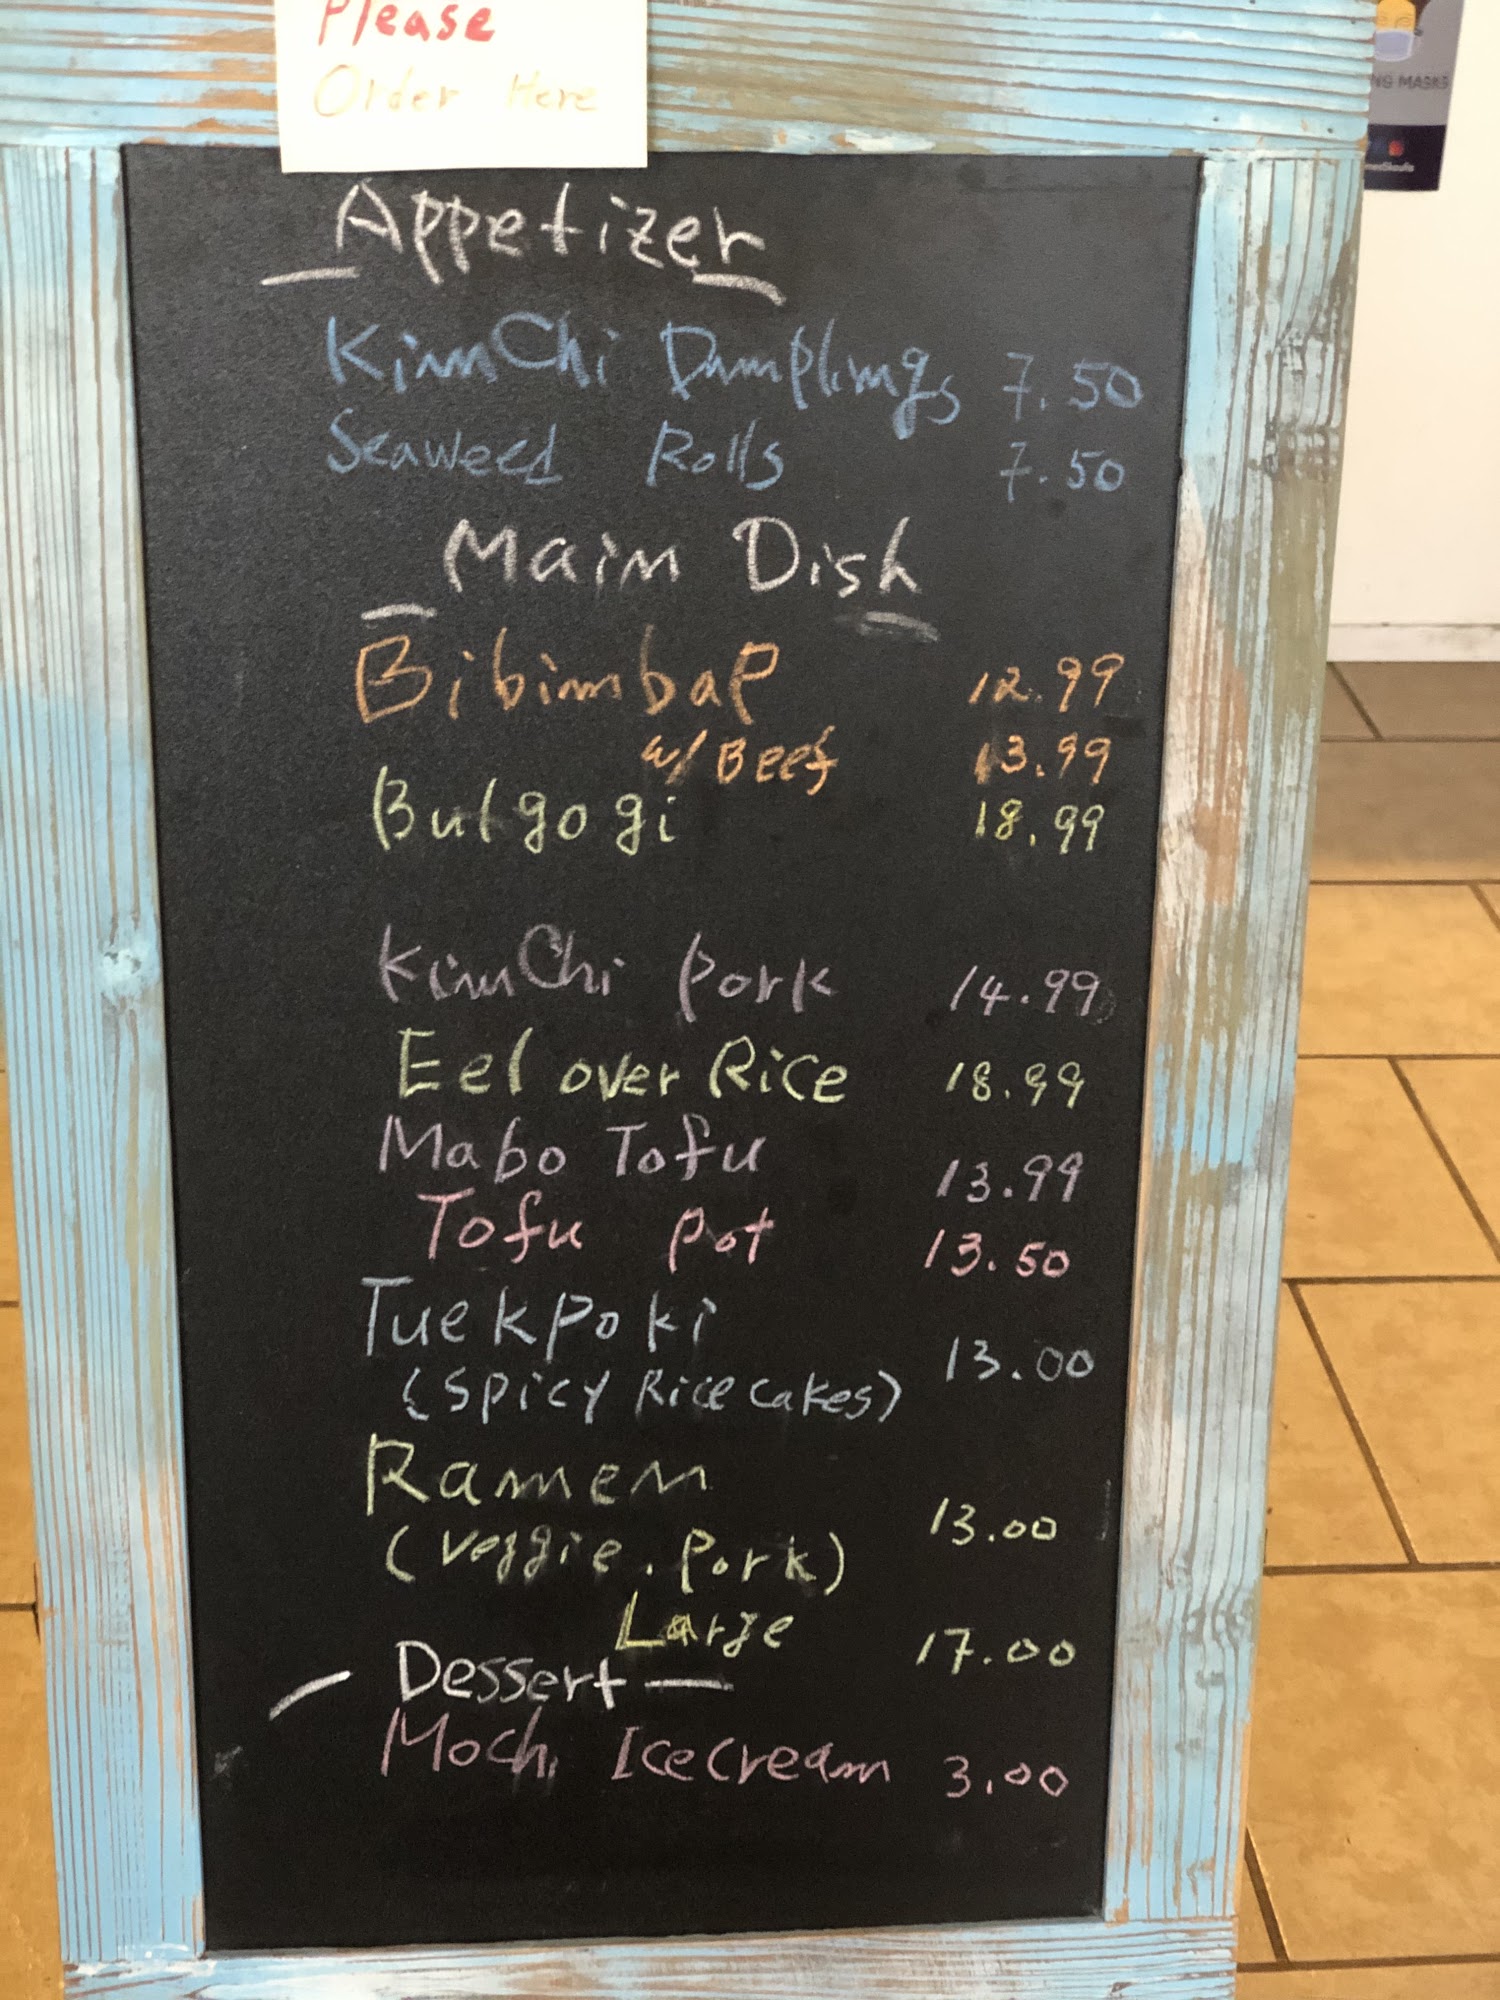 Please
Order Here
NG MASKS
Appetizer
KimChi Dumplings 7.50
Seaweed Rolls 7.50
Main Dish
Bibimbap 12.99
w/ Beef 13.99
Bulgogi 18.99
KimChi Pork 14.99
Eel over Rice 18.99
Mabo Tofu 13.99
Tofu Pot 13.50
Tuekpoki 13.00
(Spicy Rice cakes)
Ramen 13.00
(Veggie. Pork)
Large 17.00
Dessert
Mochi Icecream 3.00